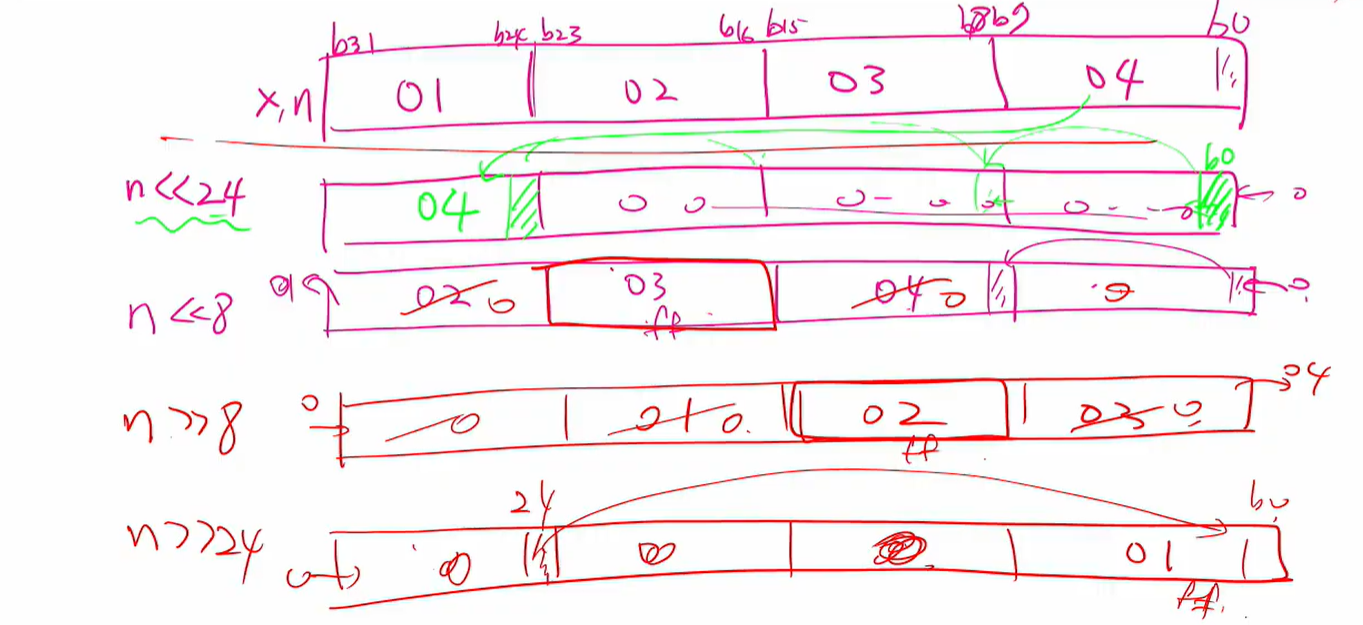 b31 b24 b23 b16 b15 b8 b7 b0
x,n 01 02 03 04
b0
n<<24 04 0 0 0 - 0 0 0 - - - 0 0
n<<8 01 02 0 03 ff 04 0 0 0
n>>8 0 0 01 0. 02 ff 03 0 04
24 b0
n>>24 0 0 0 01 ff.